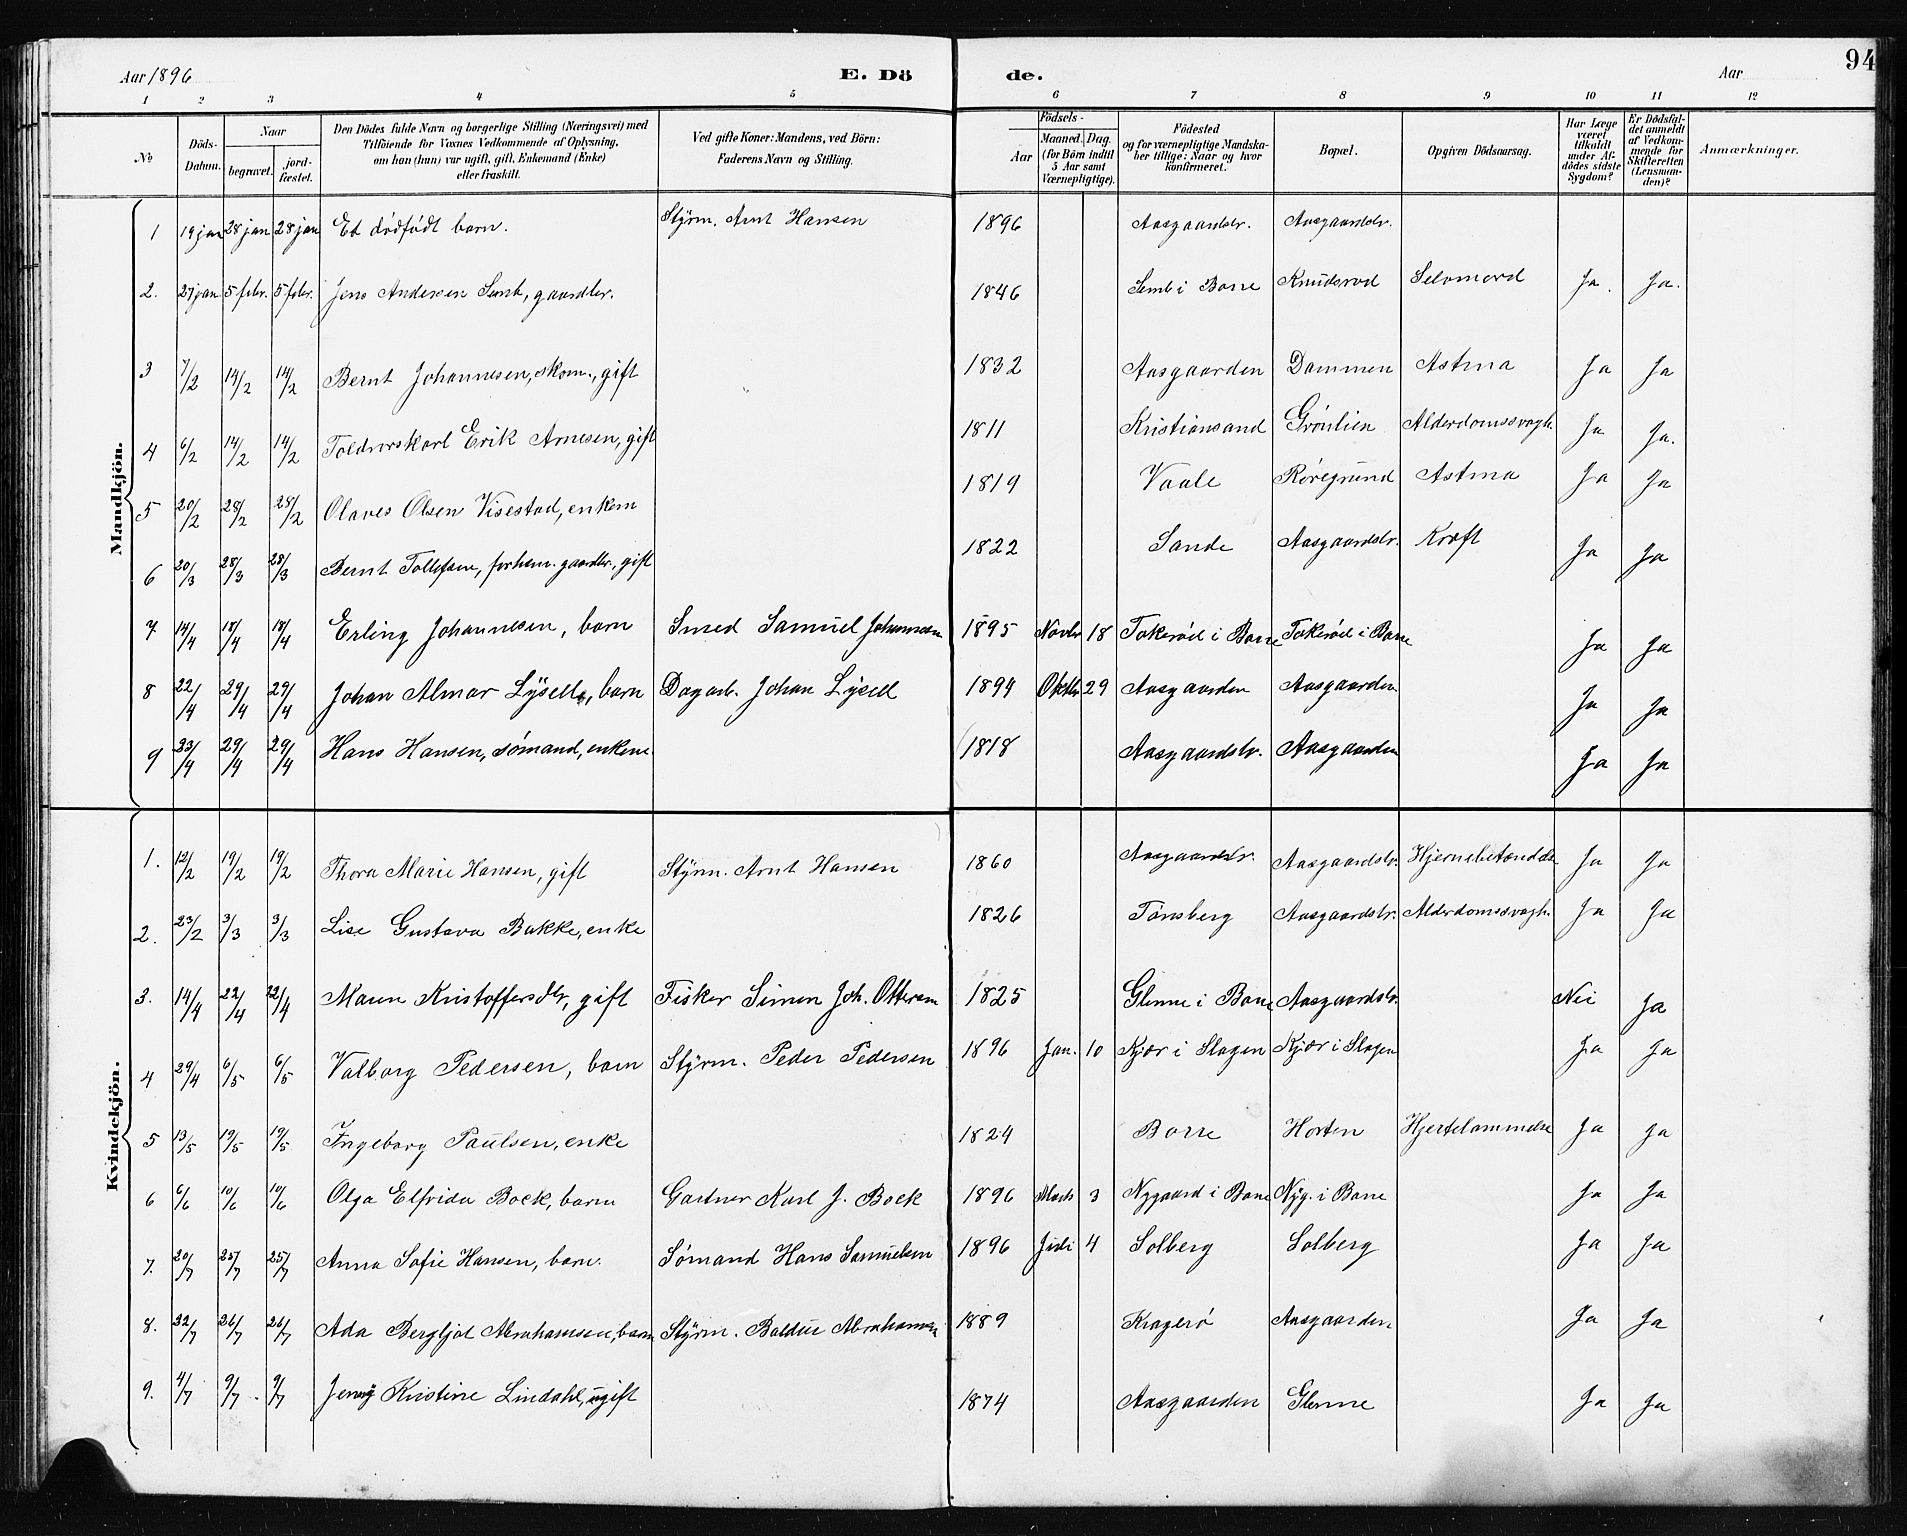 Aar 1896 E. Dö de. Aar 94
1 2 3 4 5 6 7 8 9 10 11 12
№ Döds-Datum. Naar begravet. jord-fæstet. Den Dödes fulde Navn og borgerlige Stilling (Næringsvei) med Tilföiende for Voxnes Vedkommende af Oplysning, om han (hun) var ugift, gift, Enkemand (Enke) eller fraskilt. Ved gifte Koner: Mandens, ved Börn: Faderens Navn og Stilling. Födsels- Aar Maaned. Dag. (for Börn indtil 5 Aar samt Værnepligtige). Födested og for værnepligtige Mandskaber tillige: Naar og hvor konfirmeret. Bopæl. Opgiven Dödsaarsag. Har Læge været tilkaldt under Afdödes sidste Sygdom? Er Dödsfaldet anmeldt af Vedkommende for Skifteretten (Lensmanden)? Anmærkninger.
Mandkjön.
1 19 jan 28 jan 28 jan Et dødfødt barn. Styrm. Arnt Hansen 1896 Aasgaardstr. Aasgaardstr.
2. 27 jan 5 febr. 5 febr. Jens Andersen Semb, gaardbr. 1846 Semb i Borre Knudsrod Selvmord Ja. Ja.
3 7/2 14/2 14/2 Bernt Johannesen, skom., gift 1832 Aasgaarden Dammen Astma Ja Ja
4 6/2 14/2 14/2 Erik Arnesen, gift 1811 Kristiansand Grønlien Alderdomssvagh. Ja Ja.
5 20/2 28/2 28/2 Olaves Olsen Visestad, enkem 1819 Vaale Røregrund Astma Ja Ja
6 20/3 28/3 28/3 Bernt Tollefsen, forhen. gaardbr., gift 1822 Sande Aasgaardstr. Kræft Ja Ja
7 14/4 18/4 18/4 Erling Johannesen, barn Smed Samuel Johannesen 1895 Novbr 18 Takerød i Borre Takerød i Borre Ja Ja
8 22/4 29/4 29/4 Johan Almar Lysell, barn Dagarb. Johan Lysell 1894 Oktbr 29 Aasgaarden Aasgaarden Ja Ja
9 23/4 29/4 29/4 Hans Hansen, sømand, enkem. 1818 Aasgaardstr. Aasgaarden Ja Ja
Kvindekjön.
1. 12/2 19/2 19/2 Thora Marie Hansen, gift Styrm. Arnt Hansen 1860 Aasgaardstr. Aasgaardstr. Hjernebetændelse Ja Ja
2. 23/2 3/3 3/3 Lise Gustava Bakke, enke 1826 Tønsberg Aasgaardstr. Alderdomssvagh. Ja Ja
3. 14/4 22/4 22/4 Maren Kristoffersdtr, gift Fisker Simen Joh. Ottersen 1825 Glenne i Borre Aasgaardstr. Nei Ja
4 29/4 6/5 6/5 Valborg Pedersen, barn Styrm. Peder Pedersen 1896 Jan. 10 Kjær i Slagen Kjær i Slagen Ja Ja
5 13/5 19/5 19/5 Ingeborg Paulsen, enke 1824 Borre Horten Hjertelammelse Ja Ja
6 6/6 10/6 10/6 Olga Elfrida Bock, barn Gartner Karl J. Bock 1896 Marts 3 Nygaard i Borre Nyg. i Borre Ja Ja
7. 20/7 25/7 25/7 Anna Sofie Hansen, barn. Sømand Hans Samuelsen 1896 4 Solberg Solberg Ja Ja
8. 22/7 26/7 26/7 Ada Bergljot Abrahamsen, barn Styrm. Baldur Abrahamsen 1889 Kragerø Aasgaarden Ja Ja
9. 4/7 9/7. 9/7 Jenny Kristine Lindahl, ugift 1874 Aasgaarden Glenne Ja Ja